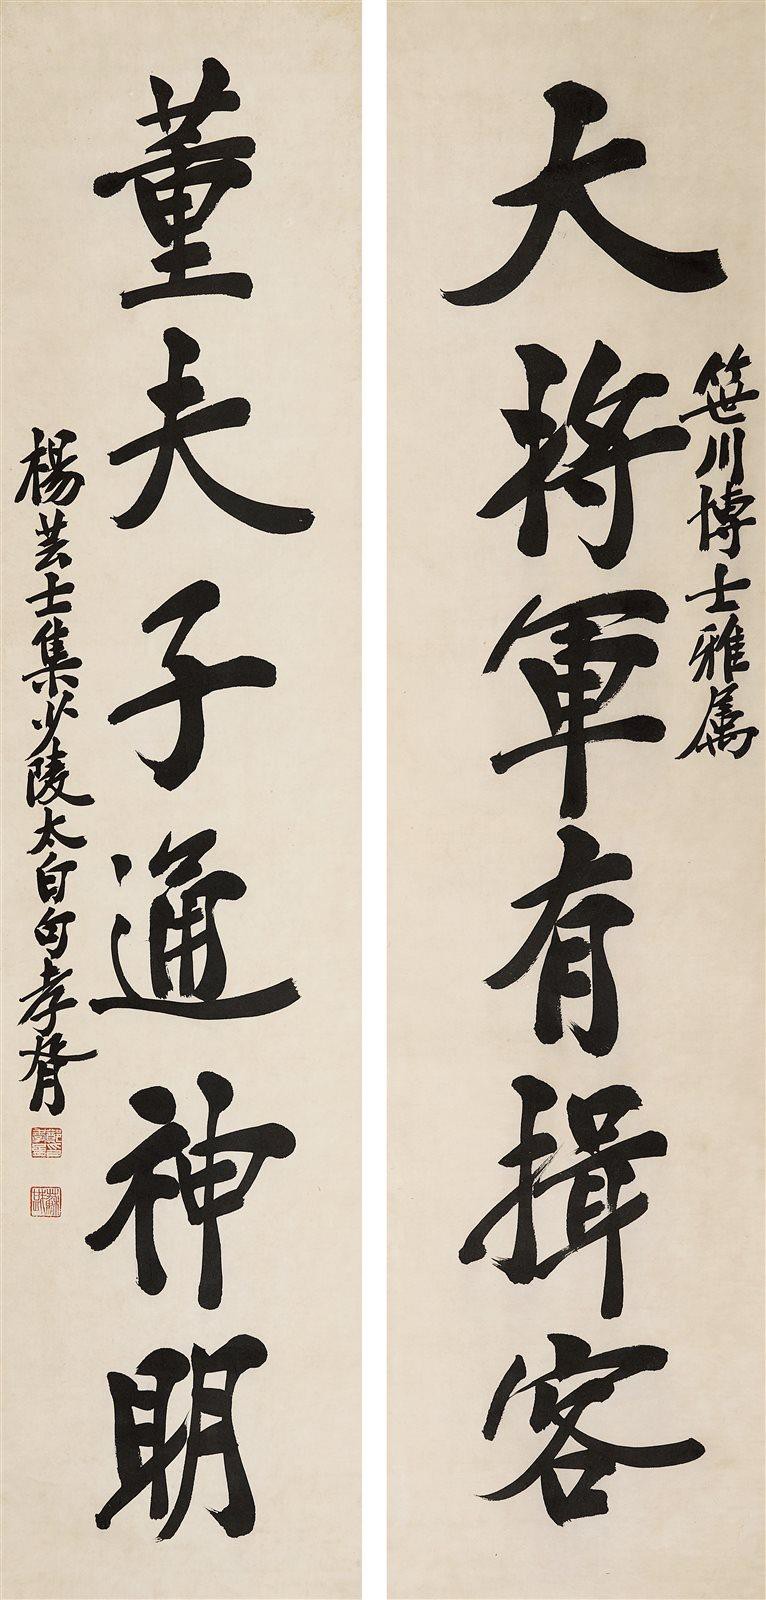 大将軍有揖客
笹川博士雅属
董夫子通神明
楊芸士集少陵太白句孝胥